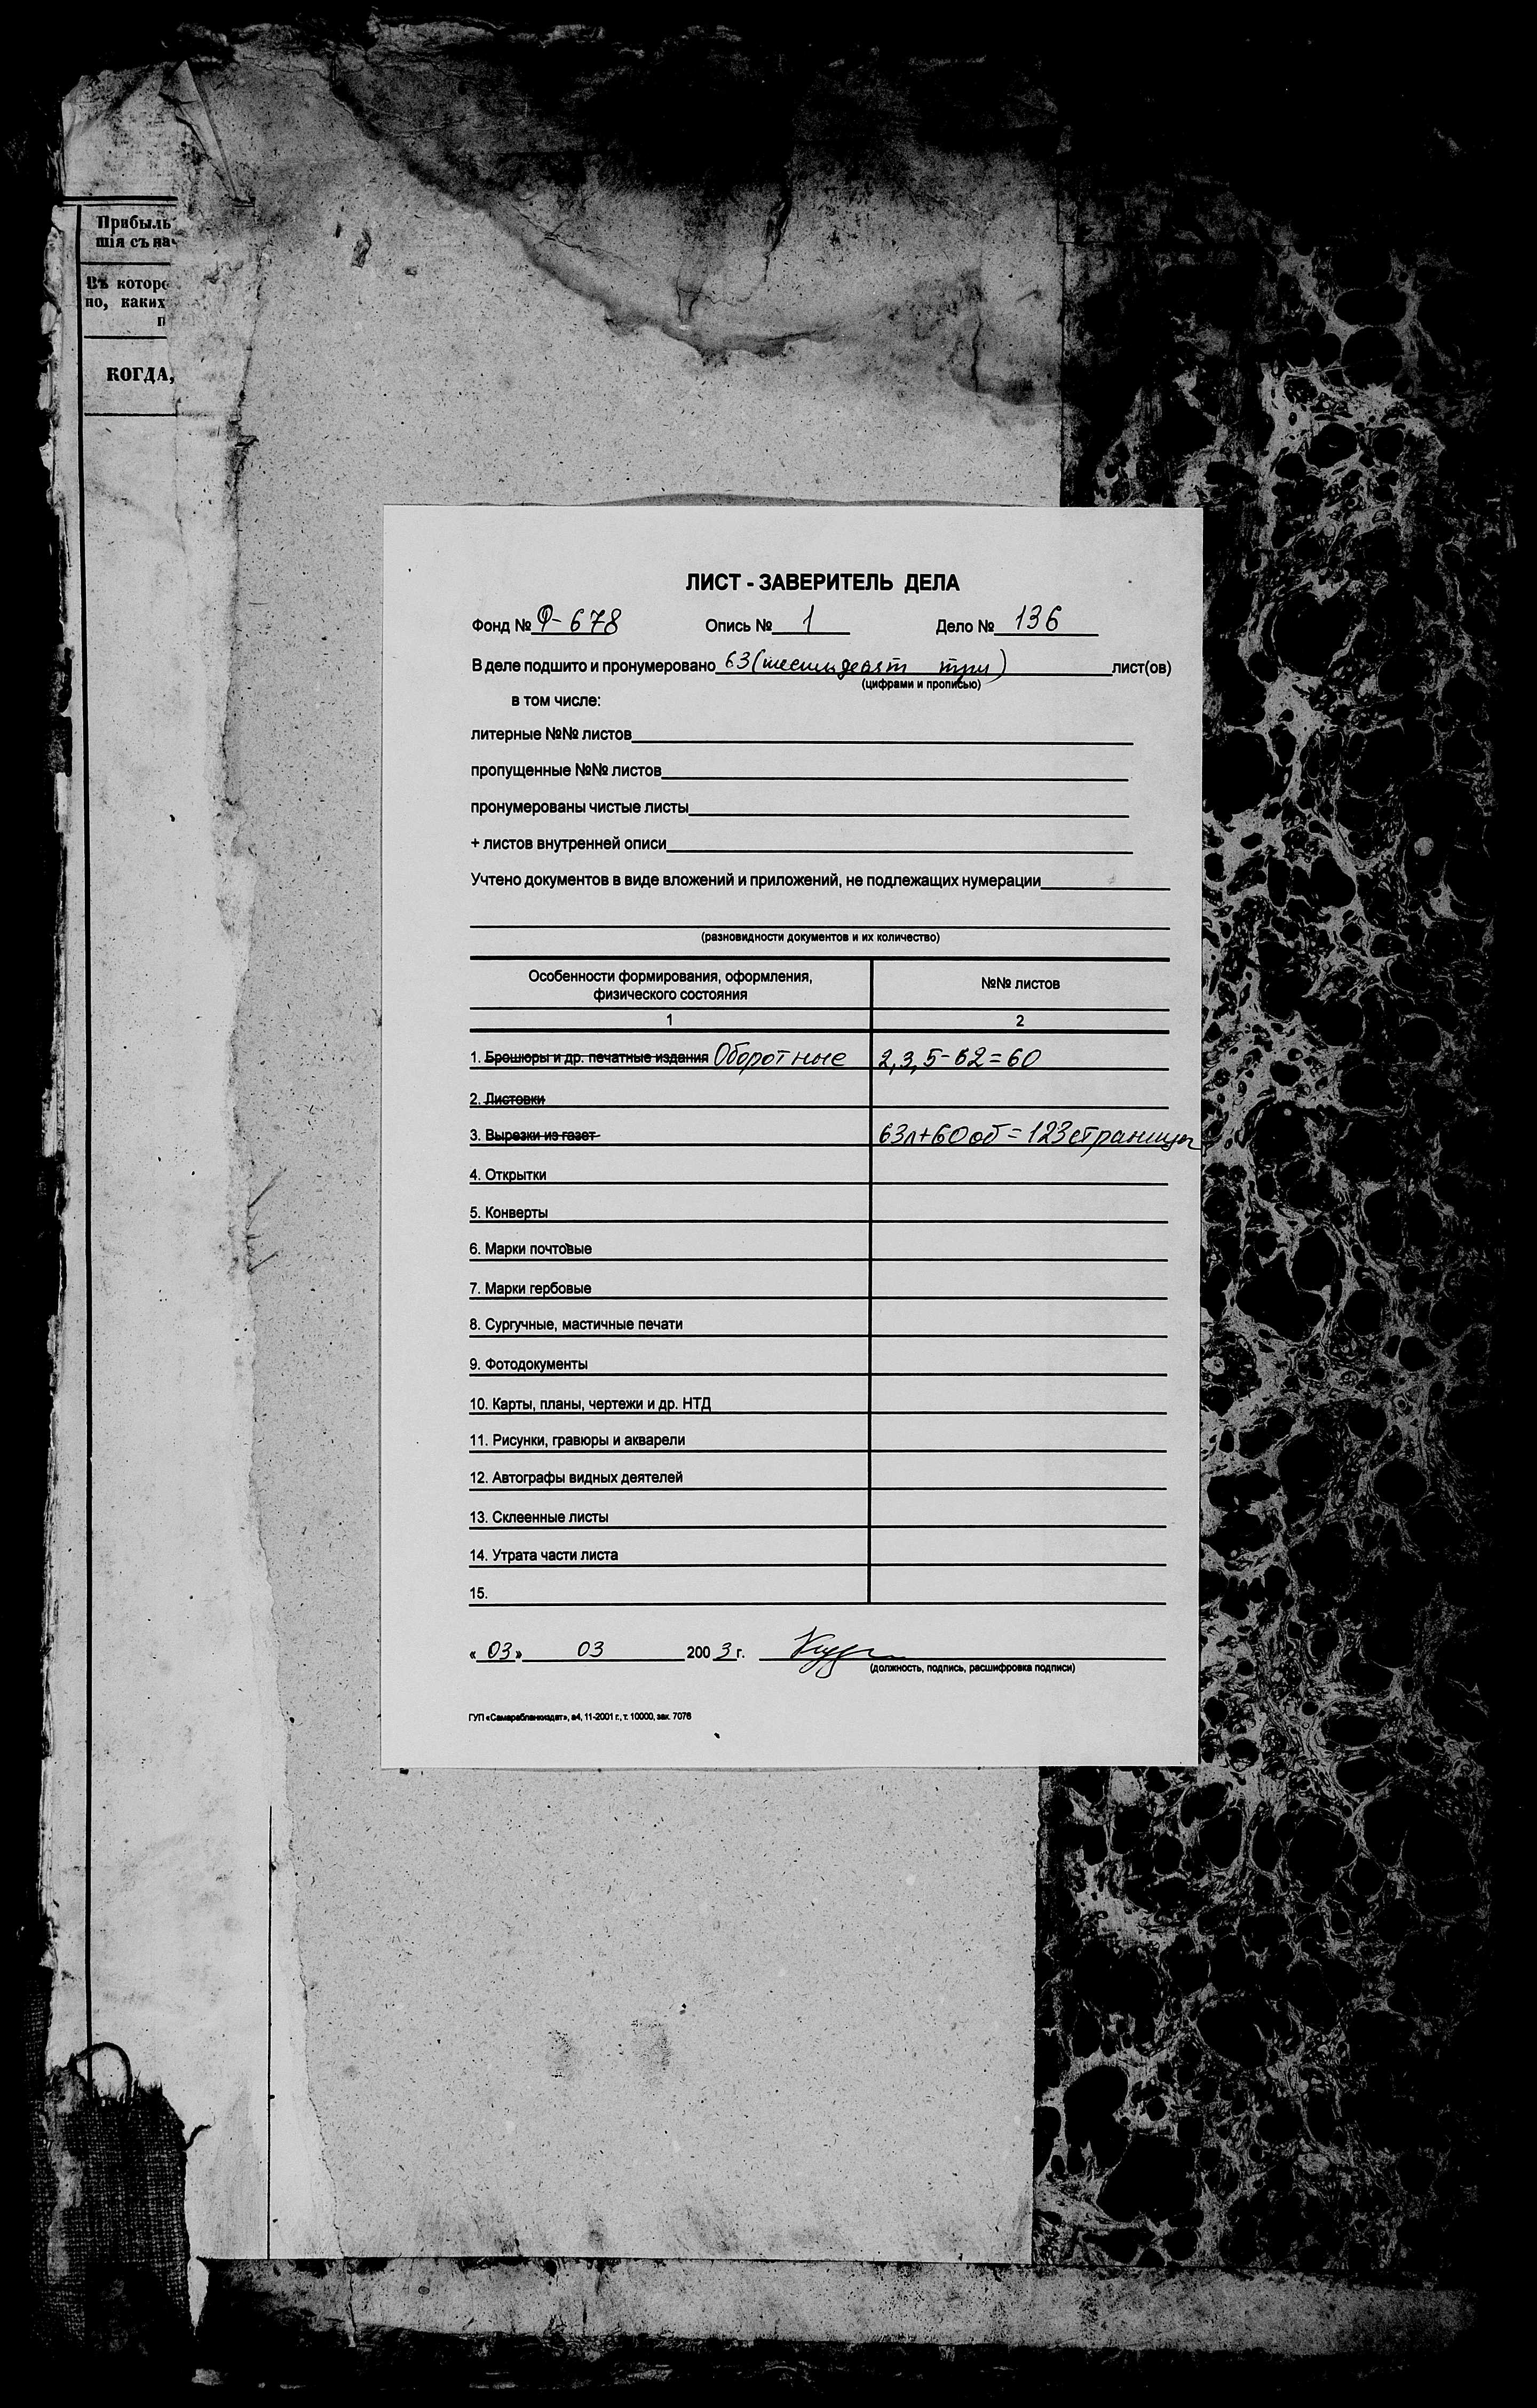 Прибыль
шія съ нач
Въ которо
но, каких
п
КОГДА,
ЛИСТ - ЗАВЕРИТЕЛЬ ДЕЛА
Фонд № Ф-678 Опись № 1 Дело № 136
В деле подшито и пронумеровано 63 (шестьдесят три) лист(ов)
(цифрами и прописью)
в том числе:
литерные №№ листов
пропущенные №№ листов
пронумерованы чистые листы
+ листов внутренней описи
Учтено документов в виде вложений и приложений, не подлежащих нумерации
(разновидности документов и их количество)
Особенности формирования, оформления, №№ листов
физического состояния
1 2
1. Брошюры и др. печатные издания Оборотные 2,3,5-62=60
2. Листовки
3. Вырезки из газет 63л+60об=123страницы
4. Открытки
5. Конверты
6. Марки почтовые
7. Марки гербовые
8. Сургучные, мастичные печати
9. Фотодокументы
10. Карты, планы, чертежи и др. НТД
11. Рисунки, гравюры и акварели
12. Автографы видных деятелей
13. Склеенные листы
14. Утрата части листа
15.
«03» 03 2003 г.
(должность, подпись, расшифровка подписи)
ГУП «Самарабланкиздат», а4, 11-2001 г., т. 10000, зак. 7076